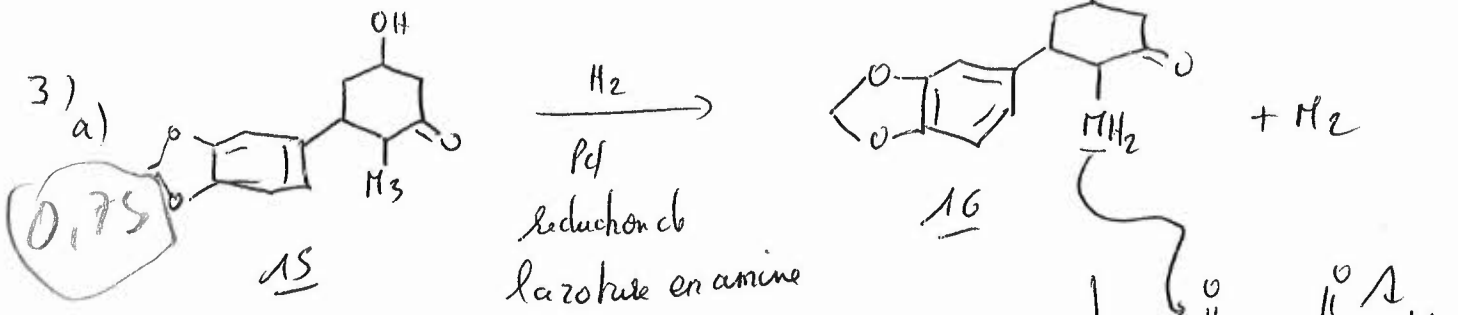 OH
3)
a)
O
O
O
N3
15
0,75
H2
Pd
reduction de
l'azoture en amine
O
O
O
NH2
16
+ N2
O
O